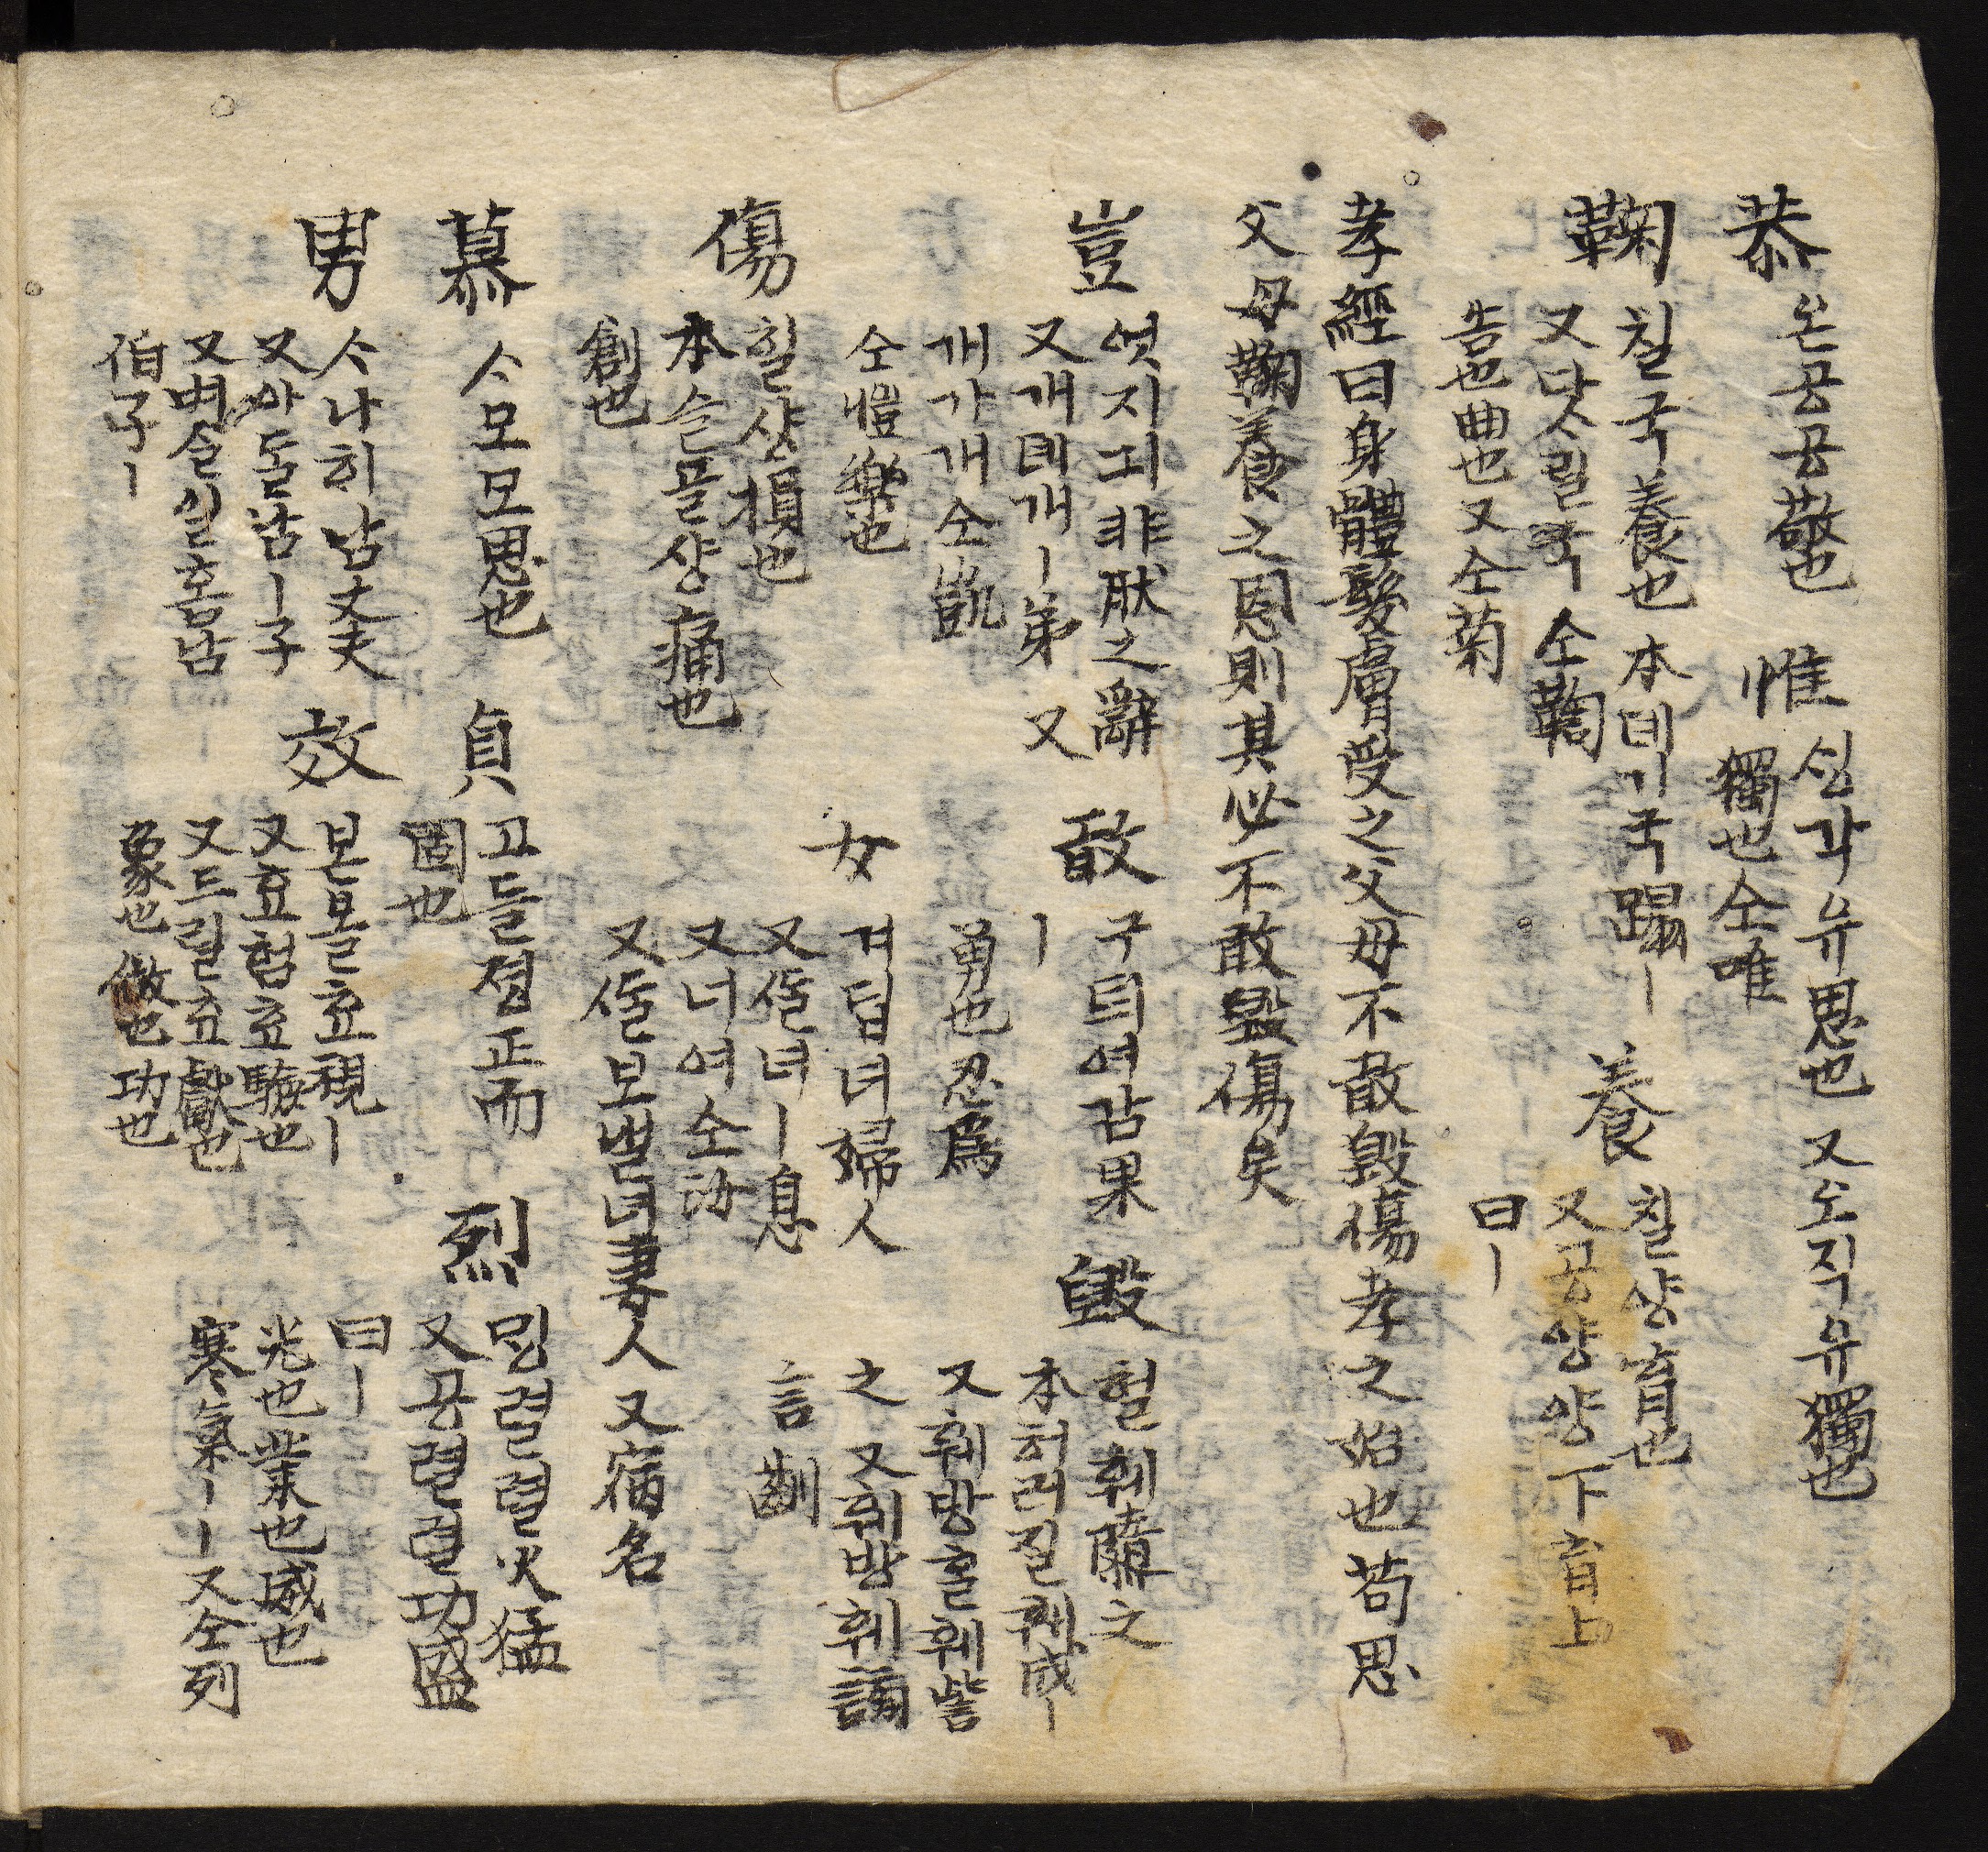 恭
온공공敬也
惟
싱각유思也 又오직유獨也
獨也仝唯
鞠
칠국養也 本데기국蹋ㅣ
又닷릴국 仝鞫
告也 曲也 又仝菊
養
칠양育也
又공양양下育上
曰ㅣ
孝經曰身體髮膚受之父母不敢毁傷孝之始也苟思
父母鞠養之恩則其必不敢毁傷矣
豈
엇지긔非肰之辭
又개톄개ㅣ弟 又
개가개仝凱
仝愷樂也
敢
구틔여감果
ㅣ
勇也忍爲
毁
헐훼隳之
本허러질훼成ㅣ
又훼방홀훼訾
之 又훼방훼謗
言 齠
傷
힐샹損也
本슬플샹痛也
創也
女
겨딥녀婦人
又녀ㅣ息
又너여仝汝
又보낼녀妻人又宿名
慕
모모思也
貞
고들졍正而
固也
烈
밍렬렬火猛
又공렬렬功盛
曰ㅣ
光也業也威也
寒氣ㅣㅣ又仝列
男
나히남丈夫
又아돌남ㅣ子
又벼슬일홈남
伯子ㅣ
效
본볼효視ㅣ
又효험효驗也
又드릴효獻也
象也倣也功也